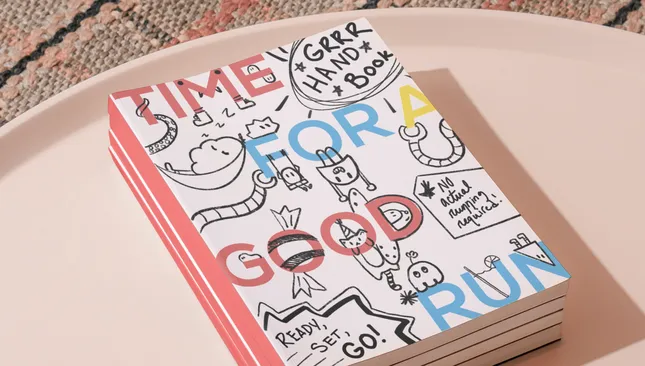 TIME
GRRR
HAND
BOOK
FOR A
zzz
GOOD
*NO
actual
running
required!
RUN
READY,
SET,
GO!